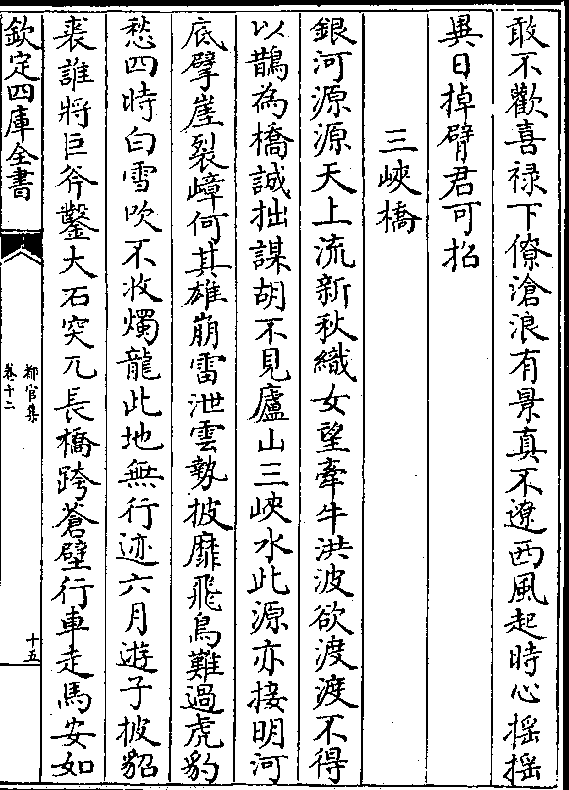 敢不歡喜禄下僚滄浪有景真不遼西風起時心揺揺
異日掉臂君可招
三峽橋
銀河源源天上流新秋織女望牽牛洪波欲渡渡不得
以鵲為橋誠拙謀胡不見廬山三峽水此源亦接明河
底擘崖裂嶂何其雄崩雷泄雲勢披靡飛鳥難過虎豹
愁四時白雪吹不收燭龍此地無行迹六月遊子披貂
裘誰將巨斧鑿大石突兀長橋跨蒼壁行車走馬安如
欽定四庫全書
都官集
卷十二
十五